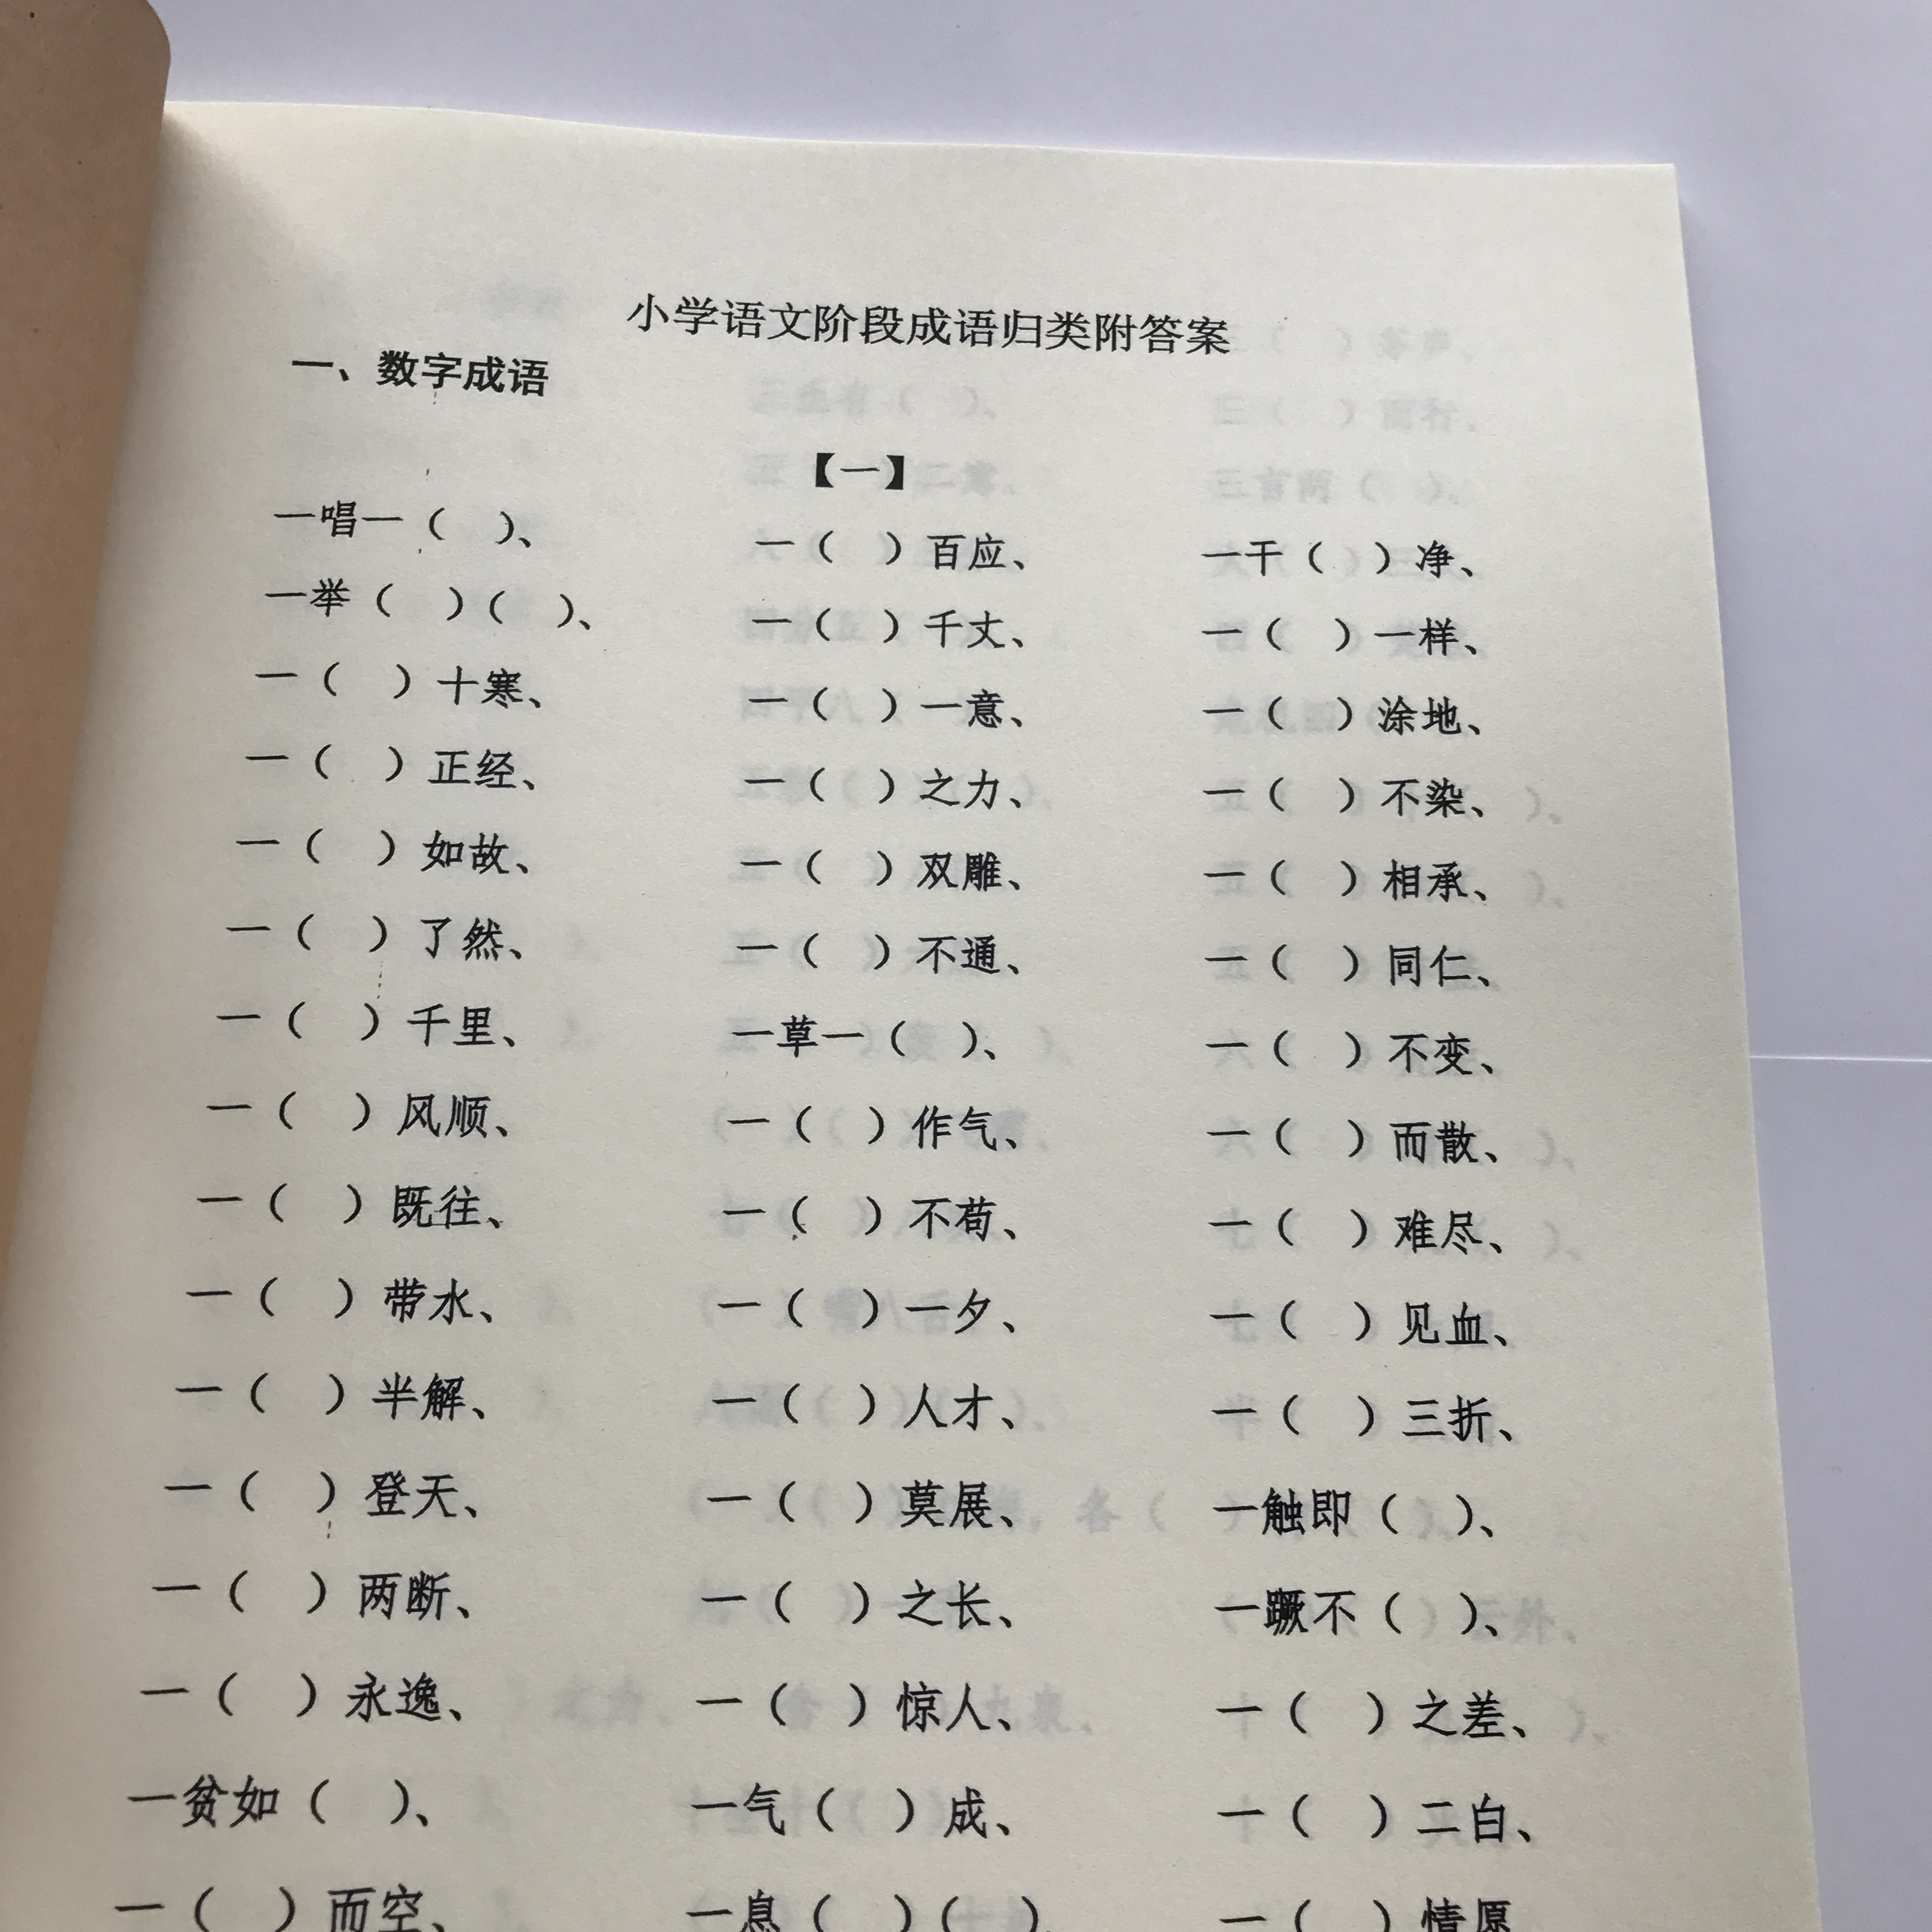 小学语文阶段成语归类附答案
一、数字成语
【一】
一唱一（ ）、 一（ ）百应、 一干（ ）净、
一举（ ）（ ）、 一（ ）千丈、 一（ ）一样、
一（ ）十寒、 一（ ）一意、 一（ ）涂地、
一（ ）正经、 一（ ）之力、 一（ ）不染、
一（ ）如故、 一（ ）双雕、 一（ ）相承、
一（ ）了然、 一（ ）不通、 一（ ）同仁、
一（ ）千里、 一草一（ ）、 一（ ）不变、
一（ ）风顺、 一（ ）作气、 一（ ）而散、
一（ ）既往、 一（ ）不苟、 一（ ）难尽、
一（ ）带水、 一（ ）一夕、 一（ ）见血、
一（ ）半解、 一（ ）人才、 一（ ）三折、
一（ ）登天、 一（ ）莫展、 一触即（ ）、
一（ ）两断、 一（ ）之长、 一蹶不（ ）、
一（ ）永逸、 一（ ）惊人、 一（ ）之差、
一贫如（ ）、 一气（ ）成、 一（ ）二白、
一（ ）而空、 一息（ ）（ ）、 一（ ）情愿